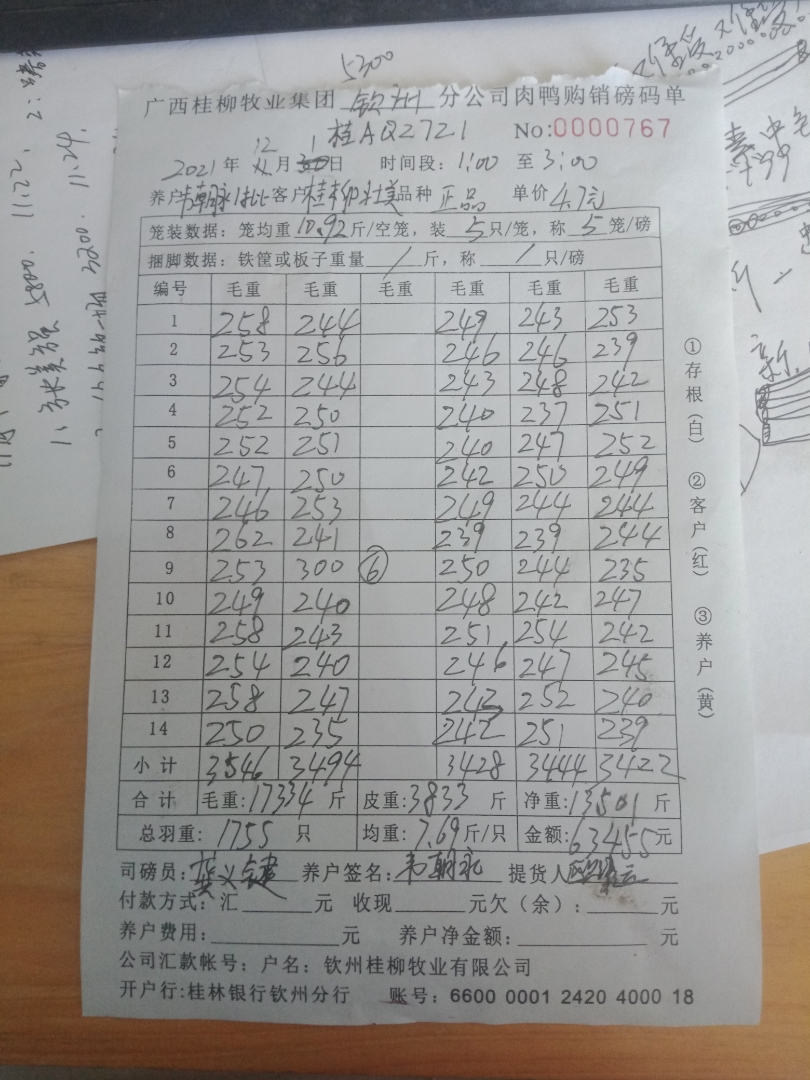 5300
广西桂柳牧业集团 钦州 分公司肉鸭购销磅码单
桂AQ2721 No:0000767
2021年 12月 1日 时间段: 1:00 至 3:00
养户 韦朝永1批 客户 桂柳壮美 品种 正品 单价 4.7元
笼装数据: 笼均重 10.92 斤/空笼, 装 5 只/笼, 称 5 笼/磅
捆脚数据: 铁筐或板子重量 / 斤, 称 / 只/磅
编号 毛重 毛重 毛重 毛重 毛重 毛重
1 258 244 249 243 253
2 253 256 246 246 239
3 254 244 243 248 242
4 252 250 240 237 251
5 252 251 240 247 252
6 247 250 242 250 249
7 246 253 249 244 244
8 262 241 239 239 244
9 253 300 ⑥ 250 244 235
10 249 240 248 242 247
11 258 243 251 254 242
12 254 240 246 247 245
13 258 247 243 252 240
14 250 235 242 251 239
小计 3546 3494 3428 3444 3422
合计 毛重: 17334 斤 皮重: 3833 斤 净重: 13501 斤
总羽重: 1755 只 均重: 7.69 斤/只 金额: 63455 元
司磅员: 龚义健 养户签名: 韦朝永 提货人
付款方式: 汇 元 收现 元欠(余): 元
养户费用: 元 养户净金额: 元
公司汇款帐号: 户名: 钦州桂柳牧业有限公司
开户行:桂林银行钦州分行 账号: 6600 0001 2420 4000 18
①存根(白) ②客户(红) ③养户(黄)
11:22
5800
11:24